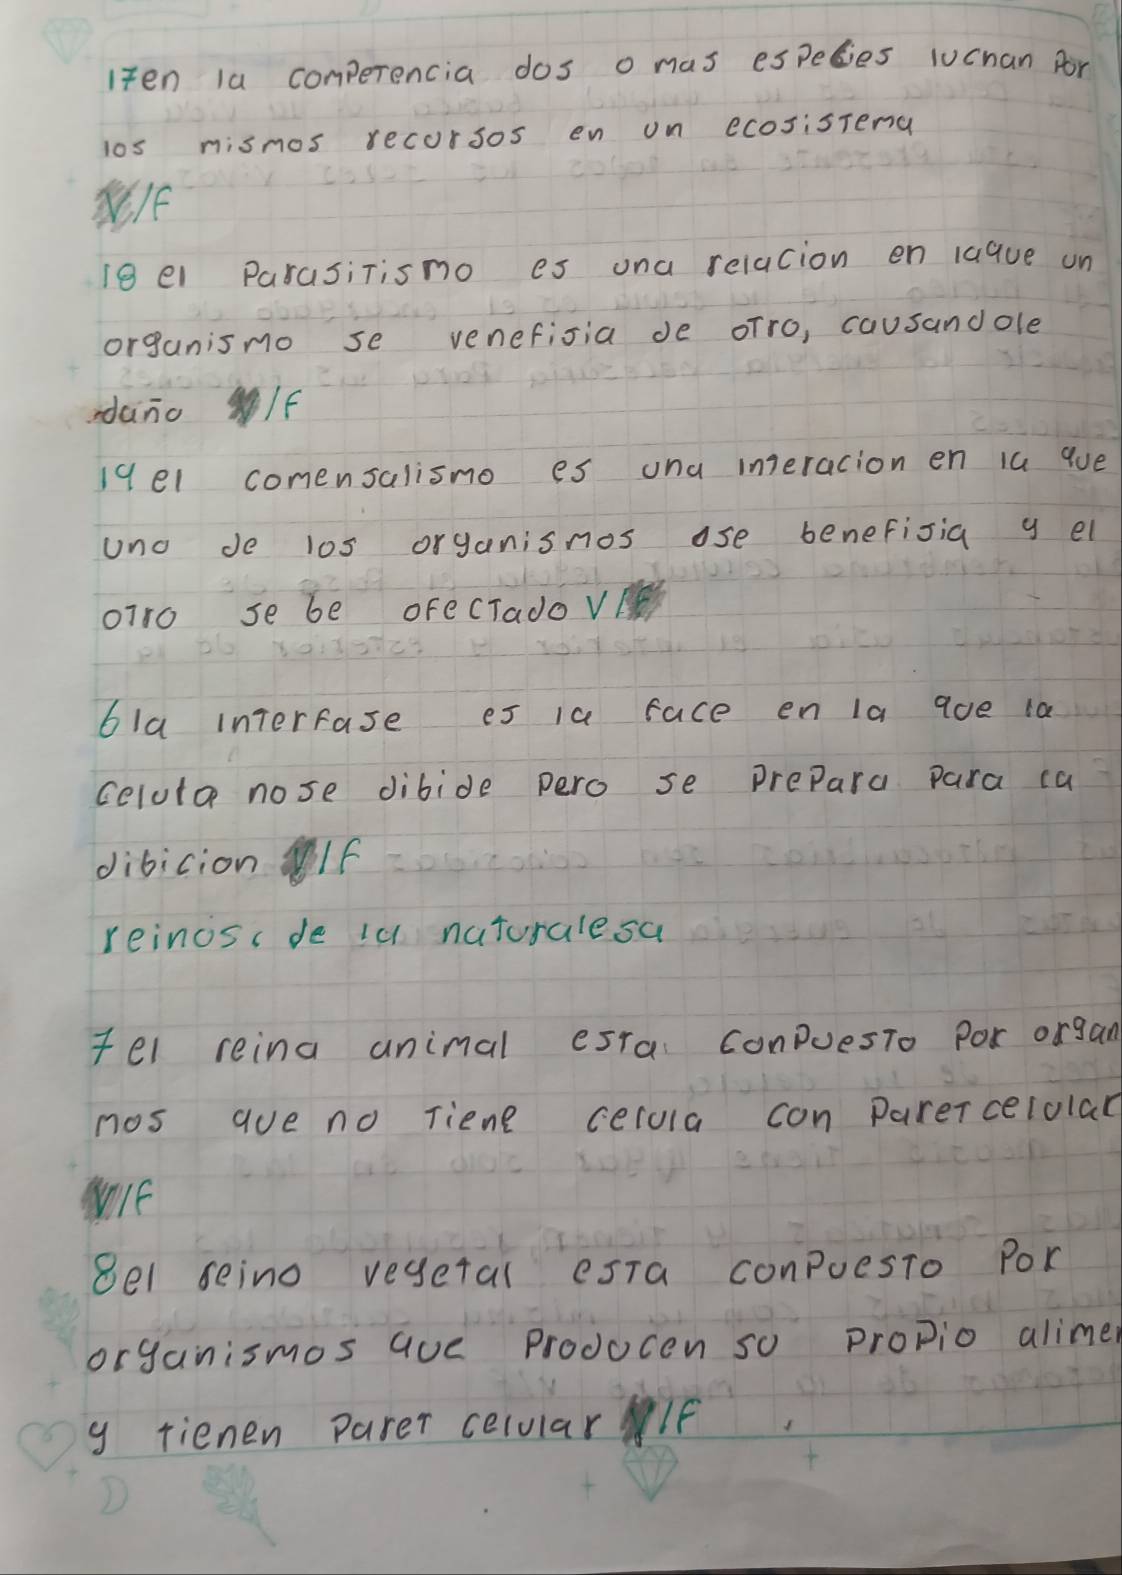 17en la competencia dos o mas espesies luchan por
los mismos recursos en un ecosistema
V/F
18 el parasitismo es una relacion en laque un
organismo se venefisia de otro, causandole
daño V/F
19 el comensalismo es una interacion en la que
uno de los organismos se benefisia y el
otro se be afectado V/F
6 la interfase es la face en la que la
celula nose dibide pero se prepara para la
dibicion V/F
reinos de la naturalesa
7 el reina animal esta conpuesto por organ
mos que no tiene celula con paret celular
V/F
8 el reino vegetal esta conpuesto por
organismos que producen su propio alimen
y tienen paret celular V/F